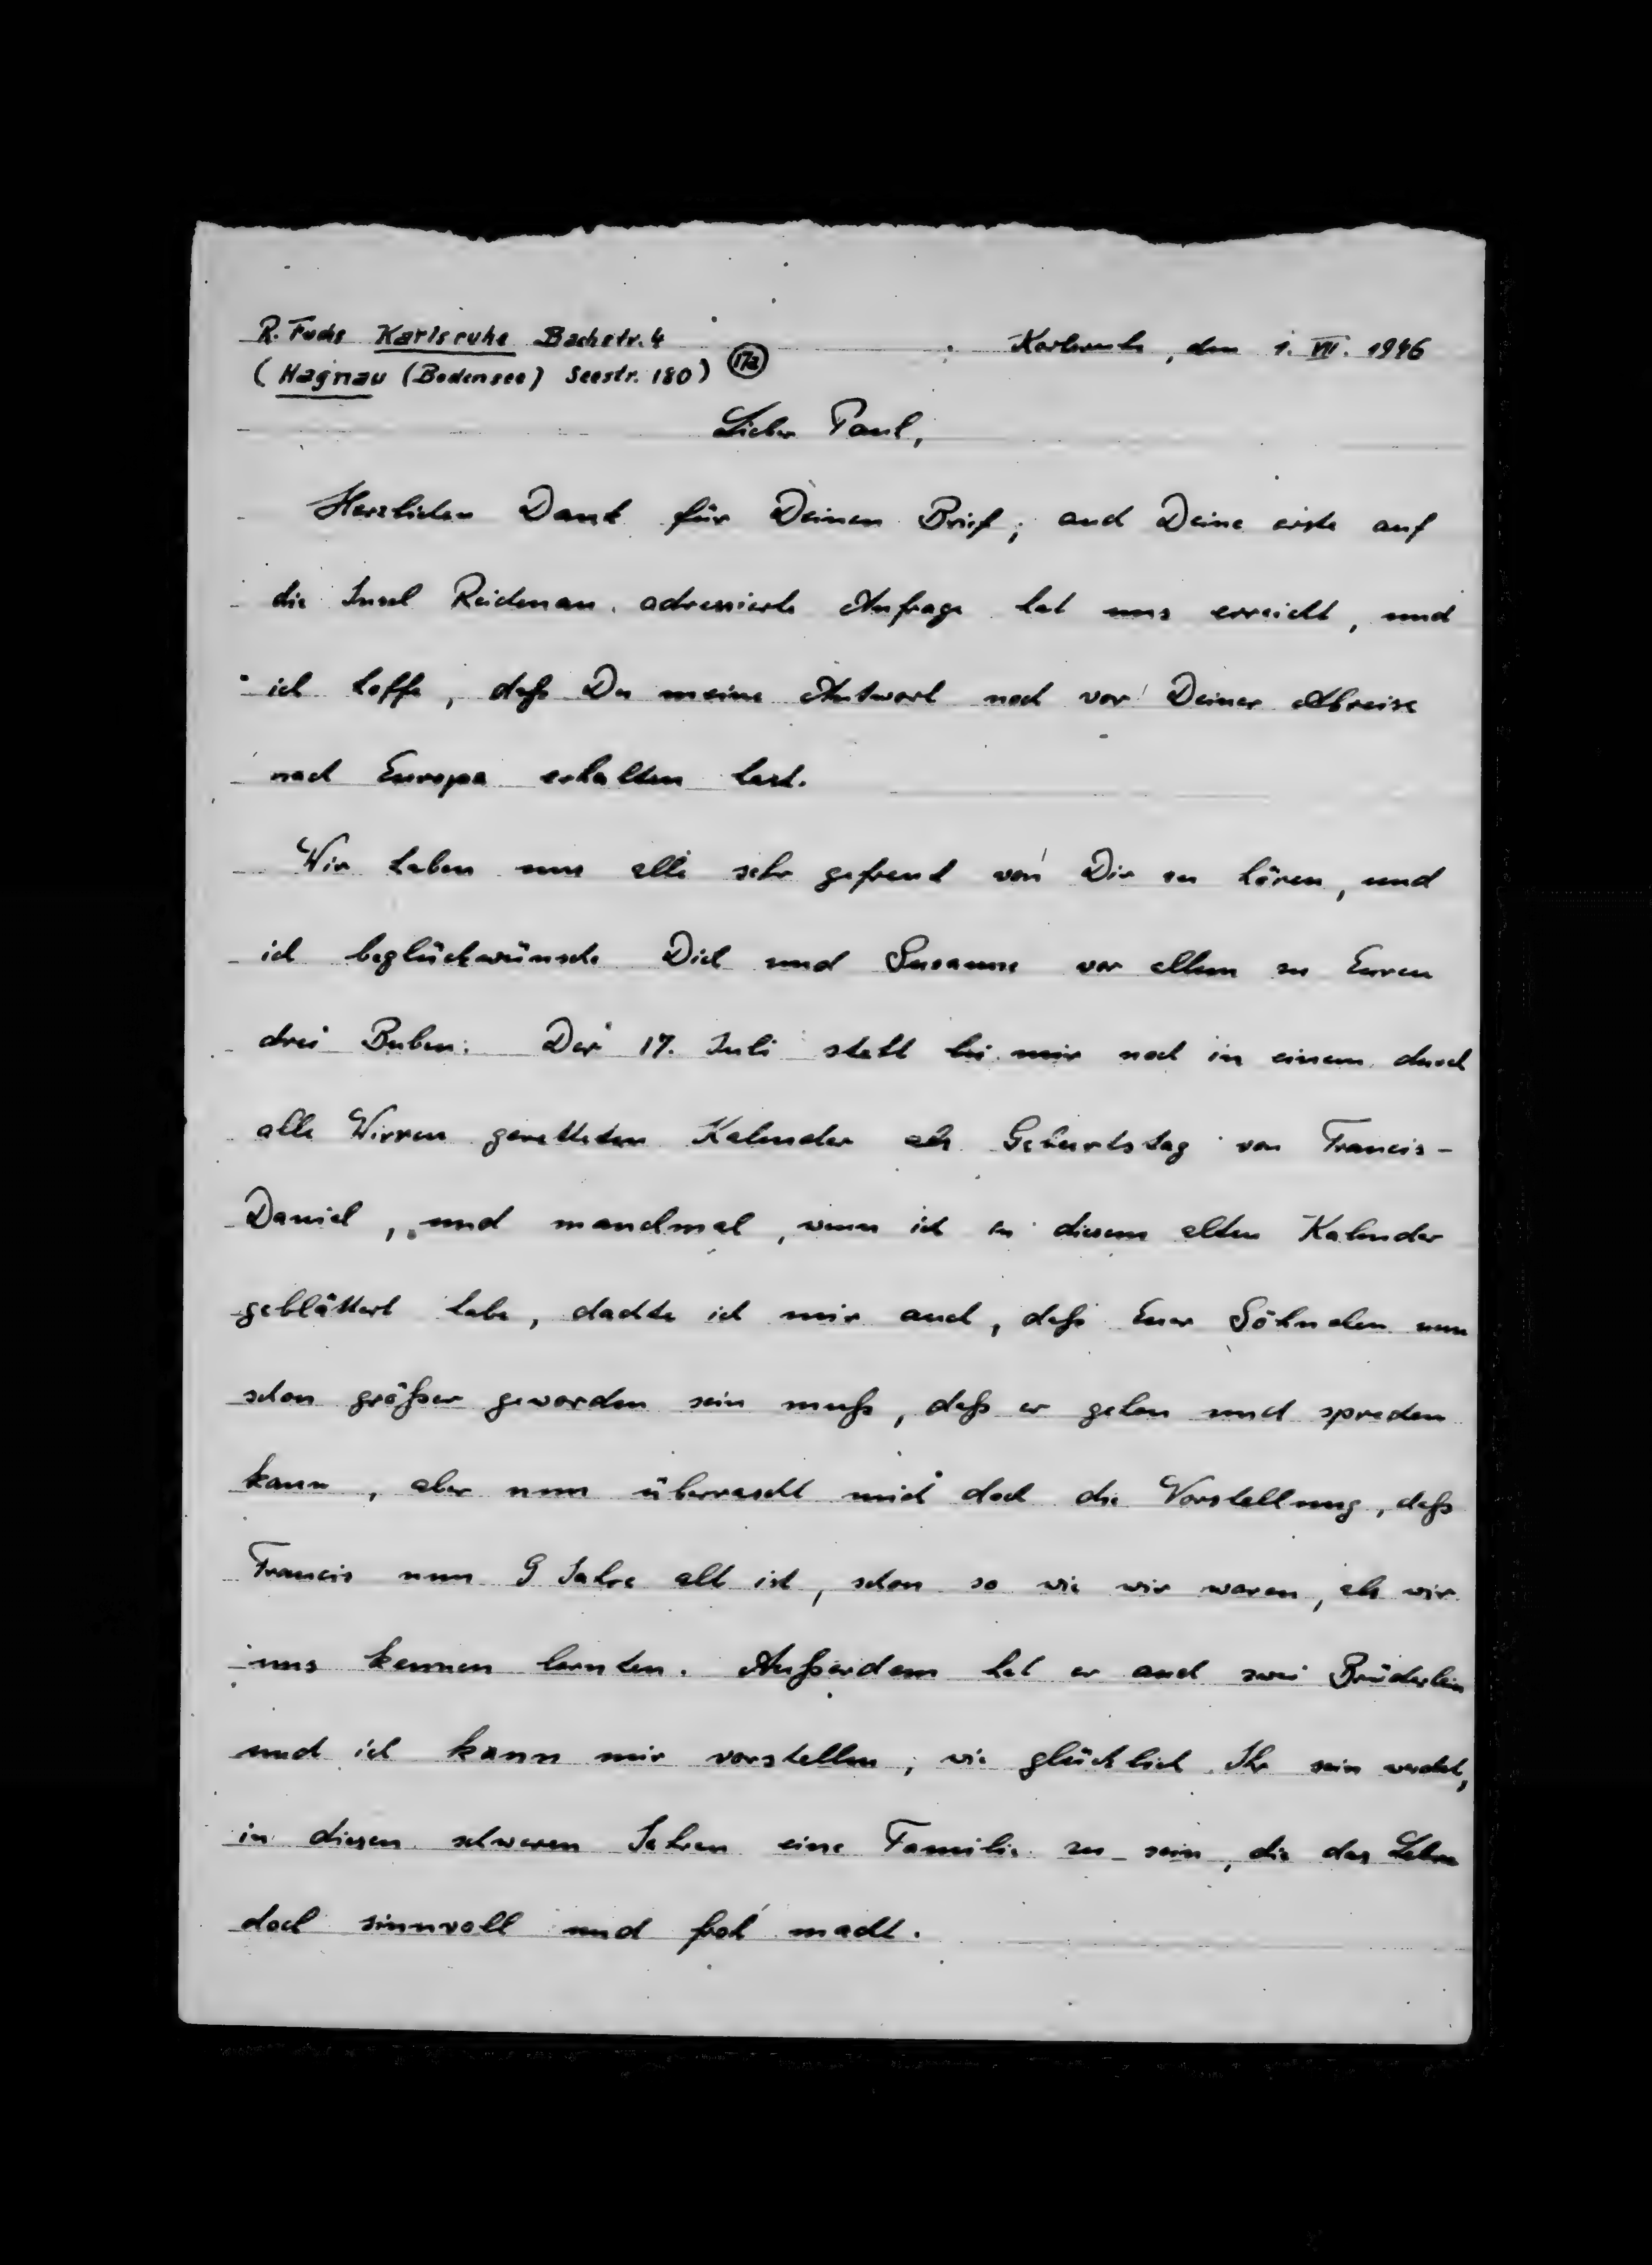 R. Fuchs Karlsruhe Bachstr. 4
(Hagnau (Bodensee) Seestr. 180) 17a
Karlsruhe, den 1. VII. 1946
Lieber Paul,
Herzlichen Dank für Deinen Brief; auch Deine erste auf
die Insel Reichenau adressierte Anfrage hat uns erreicht, und
ich hoffe, daß Du meine Antwort noch vor Deiner Abreise
nach Europa erhalten hast.
Wir haben uns alle sehr gefreut von Dir zu hören, und
ich beglückwünsche Dich und Susanne vor allem zu Euren
drei Buben. Der 17. Juli steht bei mir noch in einem durch
alle Wirren geretteten Kalender als Geburtstag von Francis-
Daniel, und manchmal, wenn ich in diesem alten Kalender
geblättert habe, dachte ich mir auch, daß Euer Söhnchen nun
schon größer geworden sein muß, daß er gehen und sprechen
kann, aber nun überrascht mich doch die Vorstellung, daß
Francis nun 9 Jahre alt ist, schon so wie wir waren, als wir
uns kennen lernten. Außerdem hat er auch zwei Brüderlein
und ich kann mir vorstellen, wie glücklich Ihr sein werdet,
in diesen schweren Jahren eine Familie zu sein, die das Leben
doch sinnvoll und froh macht.